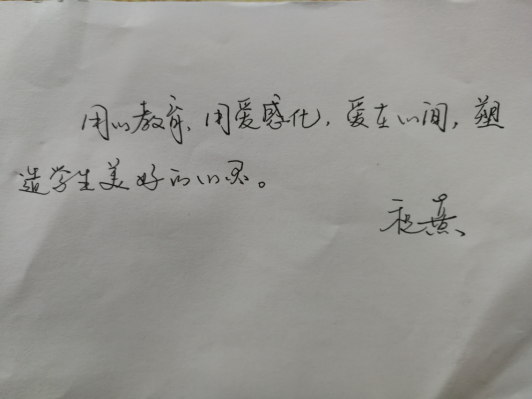 用心教育,用爱感化,爱在心间,塑
造学生美好的心灵。